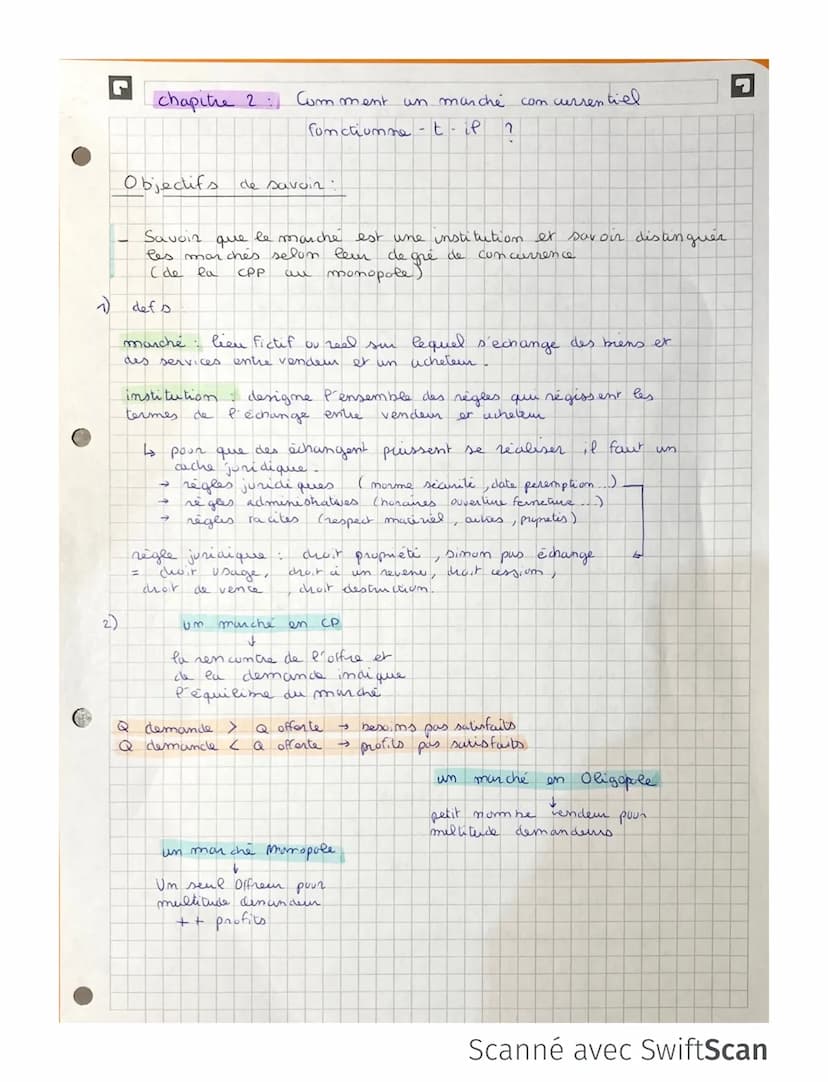 chapitre 2 : Comment un marché concurrentiel
fonctionne-t-il ?
Objectifs de savoir :
- Savoir que le marché est une institution et savoir distinguer
les marchés selon leur degré de concurrence
(de la CPP au monopole)
1) defs
marché : lieu fictif ou reel sur lequel s'echange des biens et
des services entre vendeur et un acheteur.
institution : designe l'ensemble des règles qui régissent les
termes de l'échange entre vendeur et acheteur
↳ pour que des échangent puissent se réaliser il faut un
cache juridique.
→ règles juridiques (norme sécurité, date peremption...)
→ règles administratives (horaires ouverture fermeture...)
→ règles tacites (respect matériel, autres, propretés)
règle juridique : droit propriété, sinon pas échange
= droit usage, droit à un revenu, droit cession,
droit de vence, droit destruction.
2) un marché en CP
↓
la rencontre de l'offre et
de la demande indique
l'équilibre du marché
Q demande > Q offerte → besoins pas satisfaits
Q demande < Q offerte → profits pas satisfaits
un marché en Oligopole
↓
petit nombre vendeur pour
multitude demandeurs
un marché Monopole
↓
Un seul Offreur pour
multitude demandeur
++ profits
Scanné avec SwiftScan